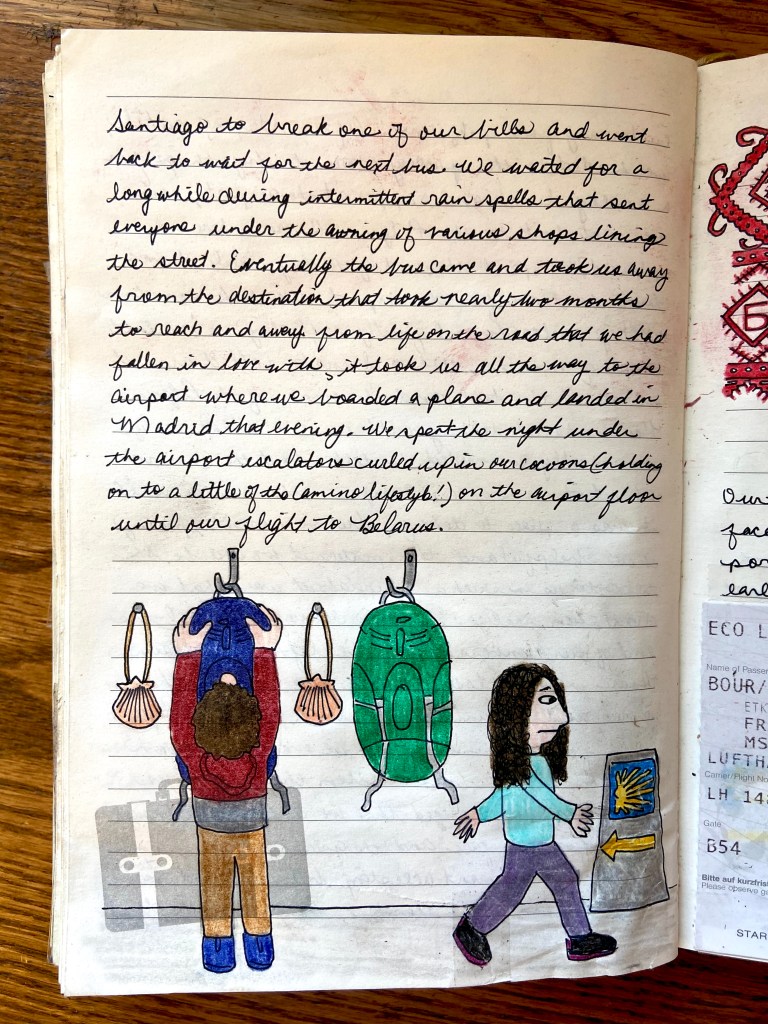 Santiago to break one of our bills and went
back to wait for the next bus. We waited for a
long while during intermittent rain spells that sent
everyone under the awning of various shops lining
the street. Eventually the bus came and took us away
from the destination that took nearly two months
to reach and away from life on the road that we had
fallen in love with, it took us all the way to the
airport where we boarded a plane and landed in
Madrid that evening. We spent the night under
the airport escalators curled up in our cocoons (holding
on to a little of the Camino lifestyle!) on the airport floor
until our flight to Belarus.
Б
Our
face
por
earl
ECO L
Name of Passe
BOUR/
ETK
FR
MS
LUFTH
Carrier/Flight No
LH 14
Gate
B54
Bitte auf kurzfris
Please observe
STAR